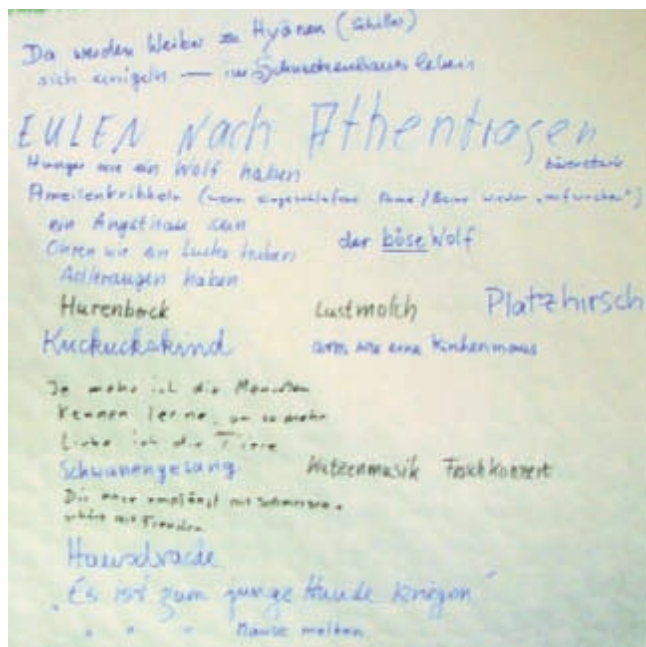 Da werden Weiber zu Hyänen (Schiller)
sich einigeln — im Schneckenhaus leben
EULEN nach Athen tragen
Hunger wie ein Wolf haben bärenstark
Ameisenkribbeln (wenn eingeschlafene Arme/Beine wieder "aufwachen")
ein Angsthase sein
Ohren wie ein Luchs haben der böse Wolf
Adleraugen haben
Hurenbock Lustmolch Platzhirsch
Kuckuckskind arm wie eine Kirchenmaus
Je mehr ich die Menschen
kennen lerne, um so mehr
Liebe ich die Tiere
Schwanengesang Katzenmusik Froschkonzert
Die empfängt mit Schmerzen
mit Freuden
Hausdrache
"Es ist zum junge Hunde kriegen"
" " " Mäuse melken